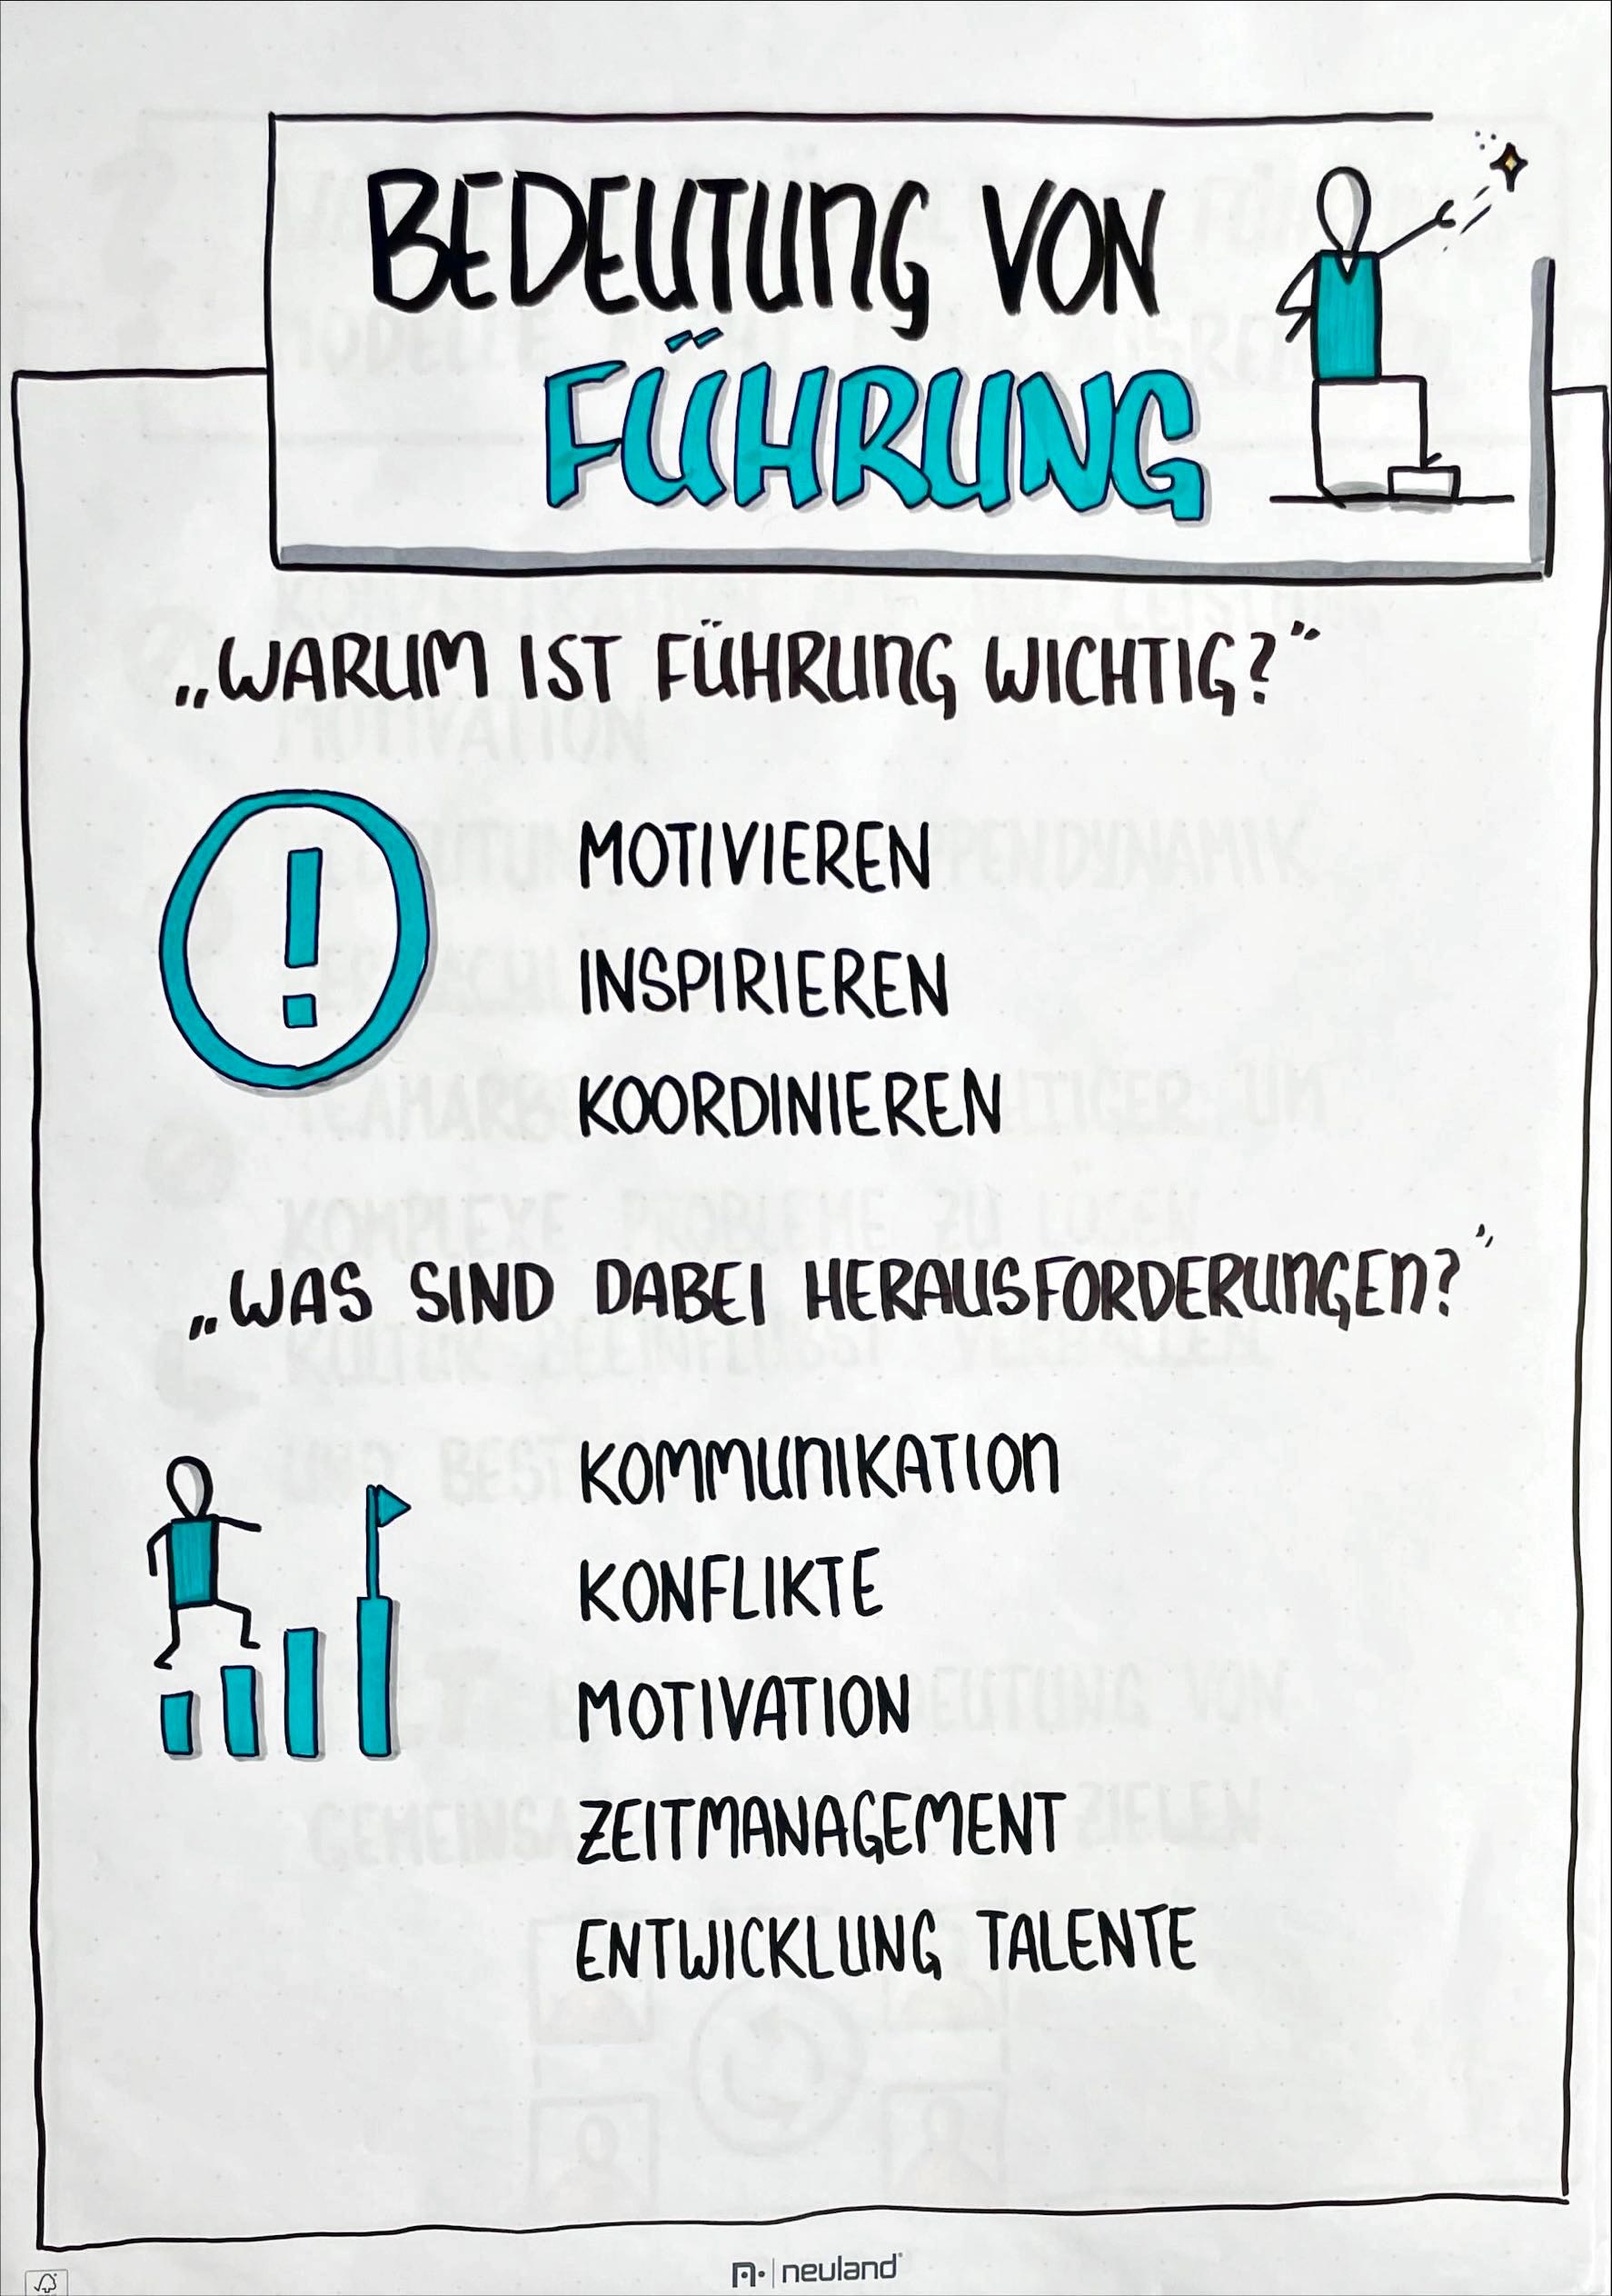 BEDEUTUNG VON
FÜHRUNG
„WARUM IST FÜHRUNG WICHTIG?"
MOTIVIEREN
INSPIRIEREN
KOORDINIEREN
„WAS SIND DABEI HERAUSFORDERUNGEN?"
KOMMUNIKATION
KONFLIKTE
MOTIVATION
ZEITMANAGEMENT
ENTWICKLUNG TALENTE
neuland